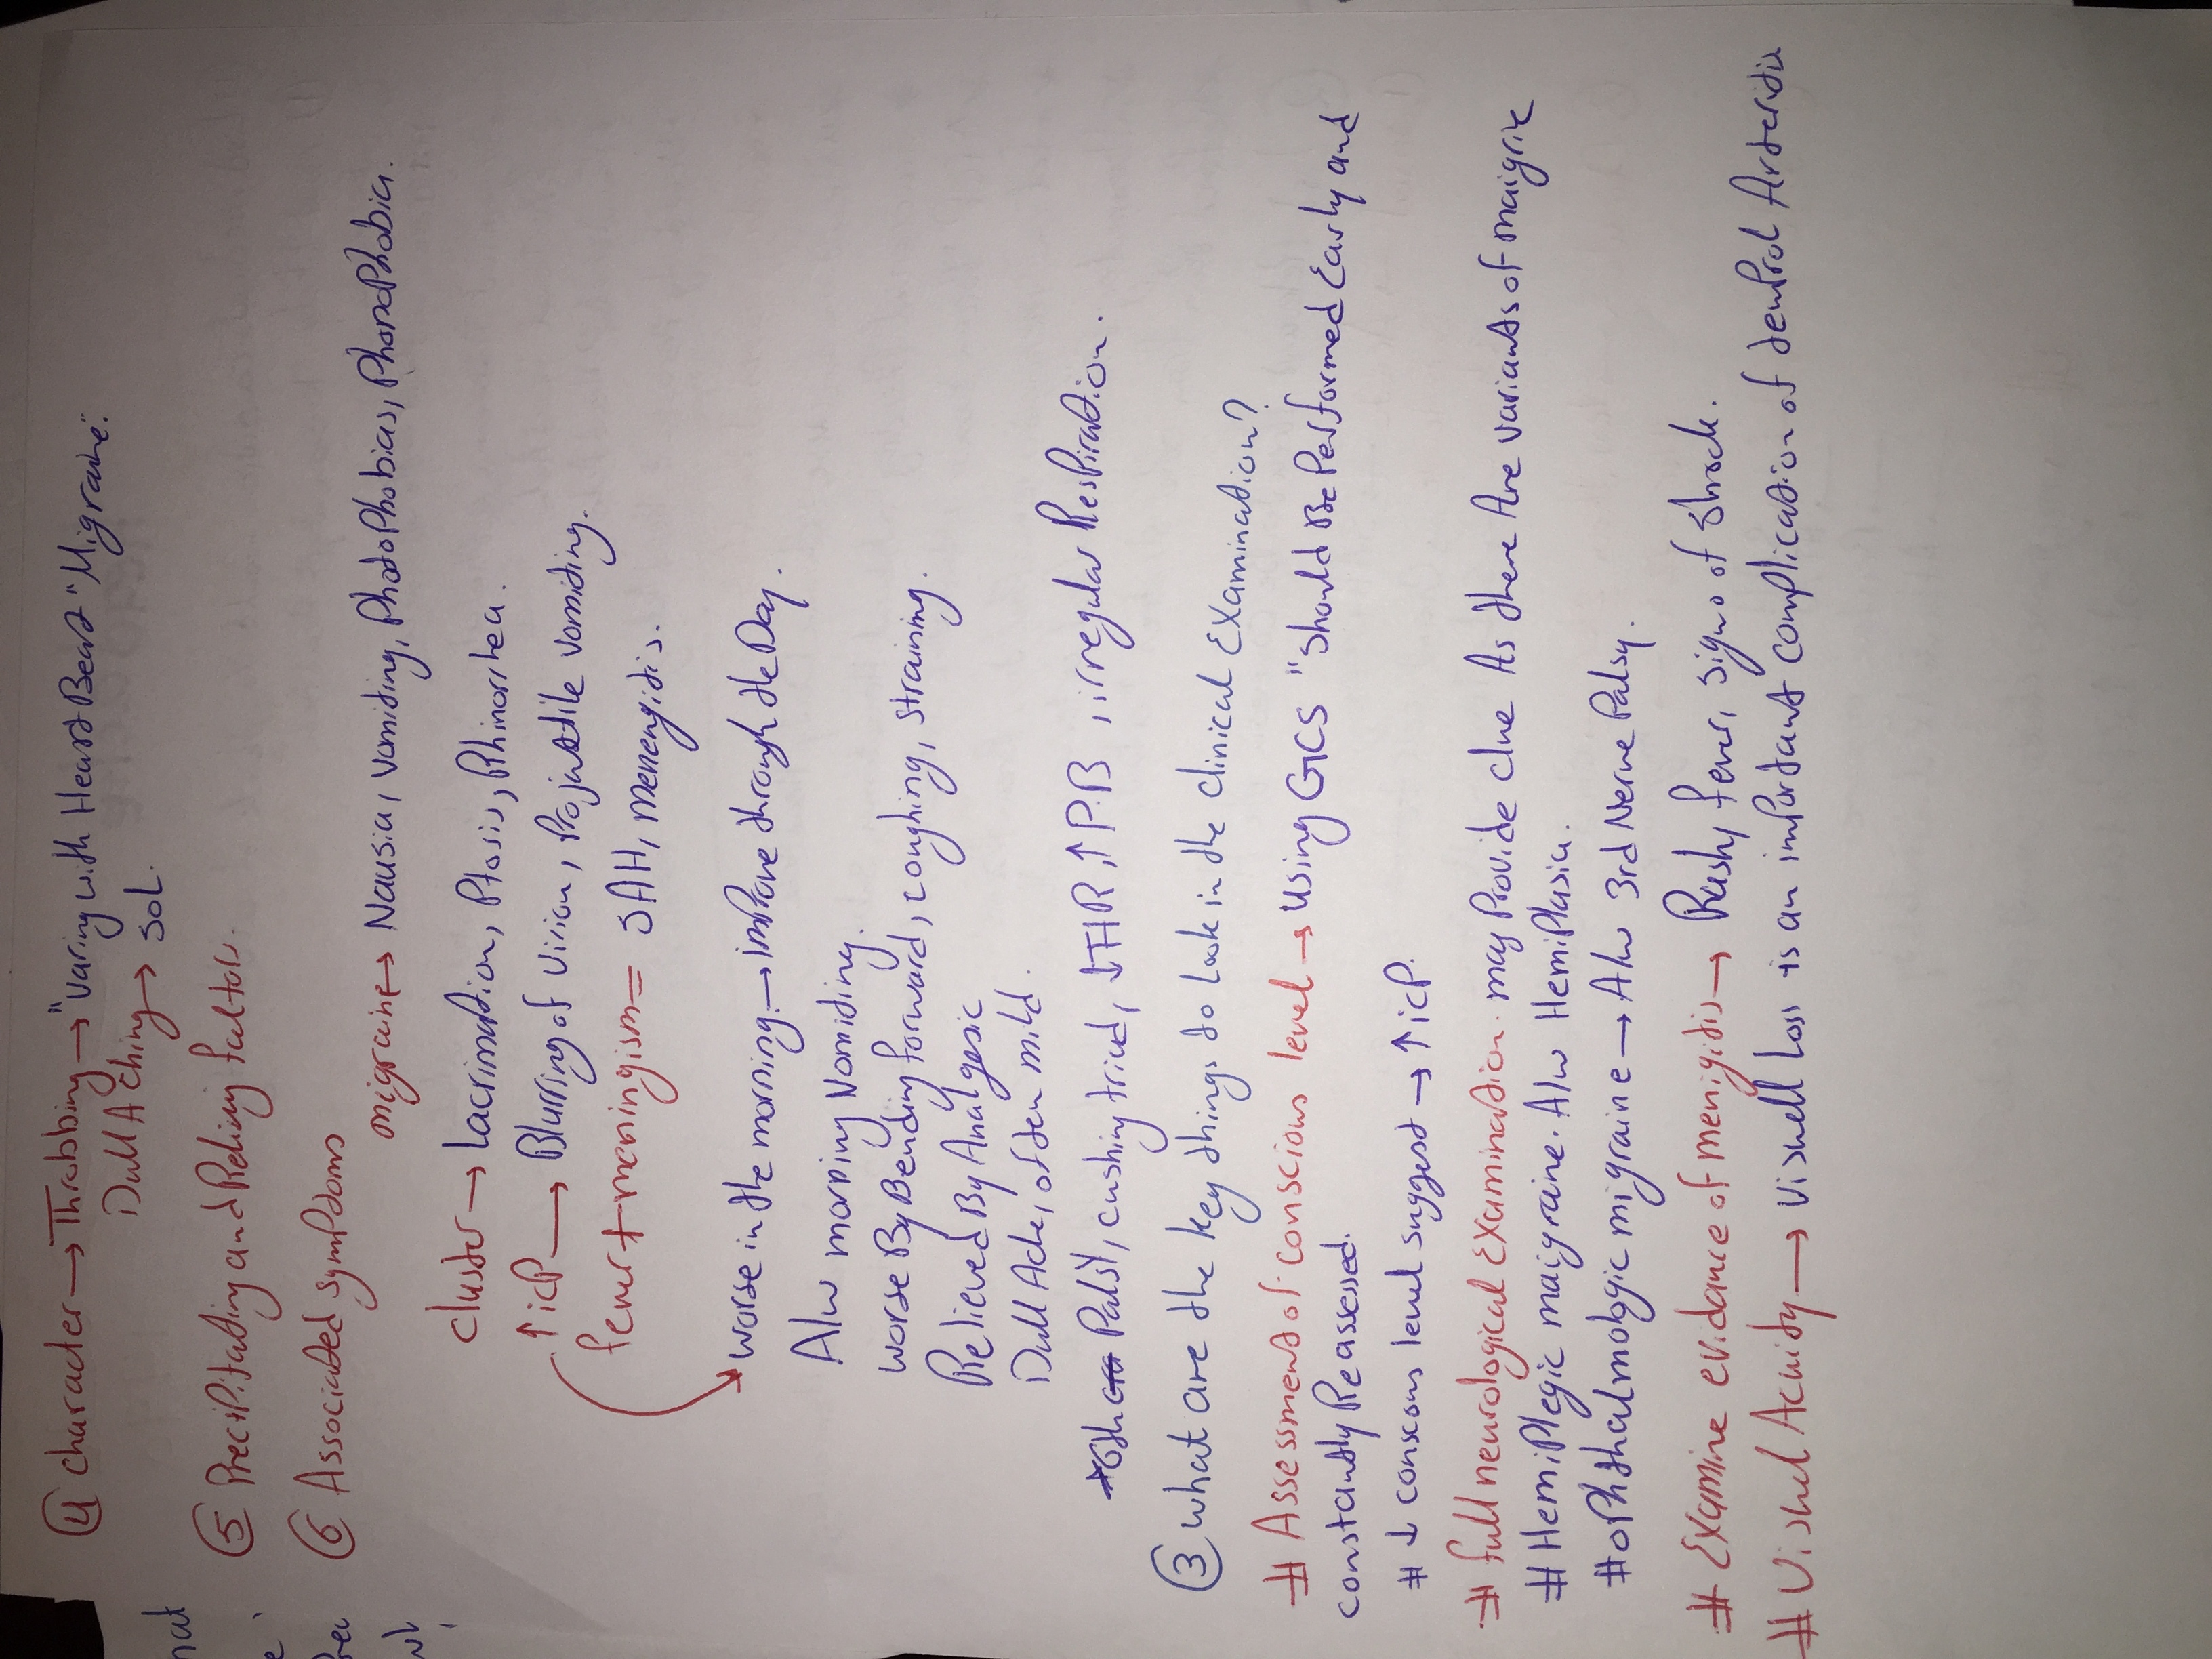 ④ character → Throbbing → "Varing with Heart Beat" "Migraine".
Dull Aching → SOL.
⑤ Precipitating and Reliving factor.
⑥ Associated symptoms
migraine → Nausia, Vomiting, Photophobias, Phonophobia.
cluster → Lacrimation, Ptosis, Rhinorrhea.
↑ icP → Blurring of Vision, Projectile vomiting.
fever + meningism = SAH, menengitis.
worse in the morning → improve through the Day.
A/w morning Vomiting.
worse By Bending forward, coughing, straining.
Relieved By Analgesic
Dull Ache, often mild.
Palsy, cushing triad, ↓HR, ↑P.B, irregular Respiration.
③ what are the key things to Look in the clinical Examination?
# Assessment of conscious level → using GCS "should Be Performed Early and
constantly Reassessed.
# ↓ conscous level suggest → ↑ icP.
# full neurological Examination. may Provide clue As there Are variants of maigrine
# HemiPlegic maigraine. A/w HemiPlasia.
# oPhthalmologic migraine → A/w 3rd Nerve Palsy.
# Examine evidance of menigitis → Rash, fever, signs of shock.
# Visual Acuity → Visuell Loss is an important complication of temProl Arteritis
nat
e,